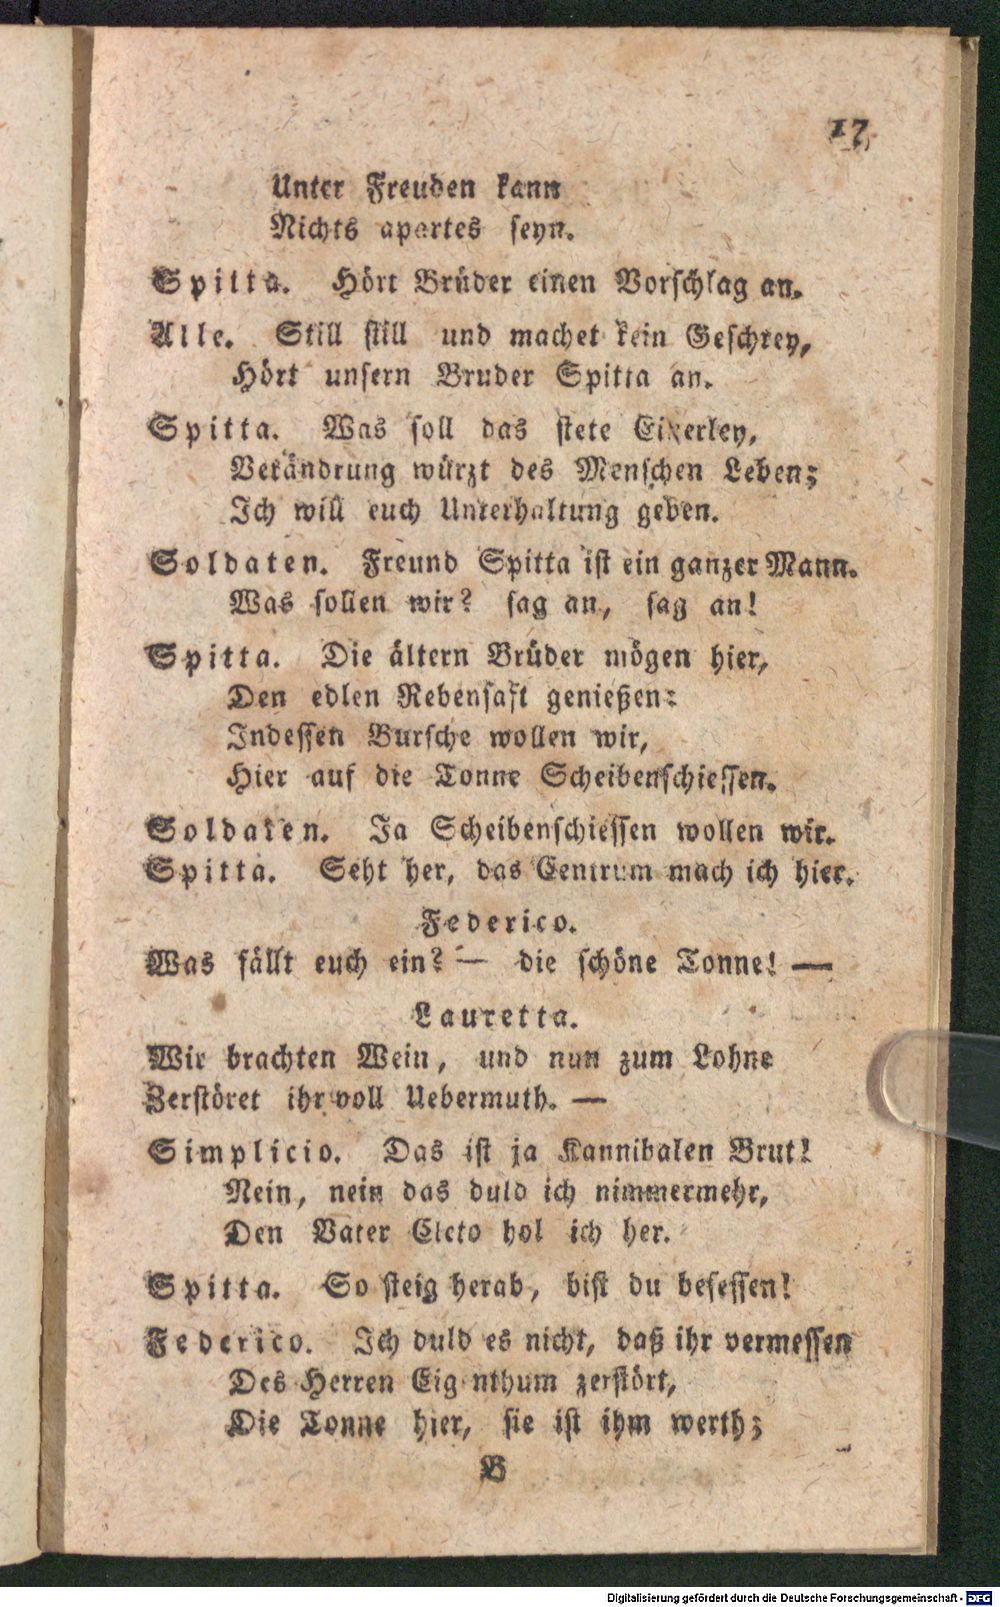 17
Unter Freuden kann
Nichts apartes seyn.
Spitta. Hört Brüder einen Vorschlag an.
Alle. Still still und machet kein Geschrey,
Hört unsern Bruder Spitta an.
Spitta. Was soll das stete Einerley,
Verändrung würzt des Menschen Leben;
Ich will euch Unterhaltung geben.
Soldaten. Freund Spitta ist ein ganzer Mann.
Was sollen wir? sag an, sag an!
Spitta. Die ältern Brüder mögen hier,
Den edlen Rebensaft genießen:
Indessen Bursche wollen wir,
Hier auf die Tonne Scheibenschiessen.
Soldaten. Ja Scheibenschiessen wollen wir.
Spitta. Seht her, das Centrum mach ich hier.
Federico.
Was fällt euch ein? — die schöne Tonne! —
Lauretta.
Wir brachten Wein, und nun zum Lohne
Zerstöret ihr voll Uebermuth. —
Simplicio. Das ist ja Kannibalen Brut!
Nein, nein das duld ich nimmermehr,
Den Vater Cleto hol ich her.
Spitta. So steig herab, bist du besessen!
Federico. Ich duld es nicht, daß ihr vermessen
Des Herren Eigenthum zerstört,
Die Tonne hier, sie ist ihm werth;
B
Digitalisierung gefördert durch die Deutsche Forschungsgemeinschaft - DFG